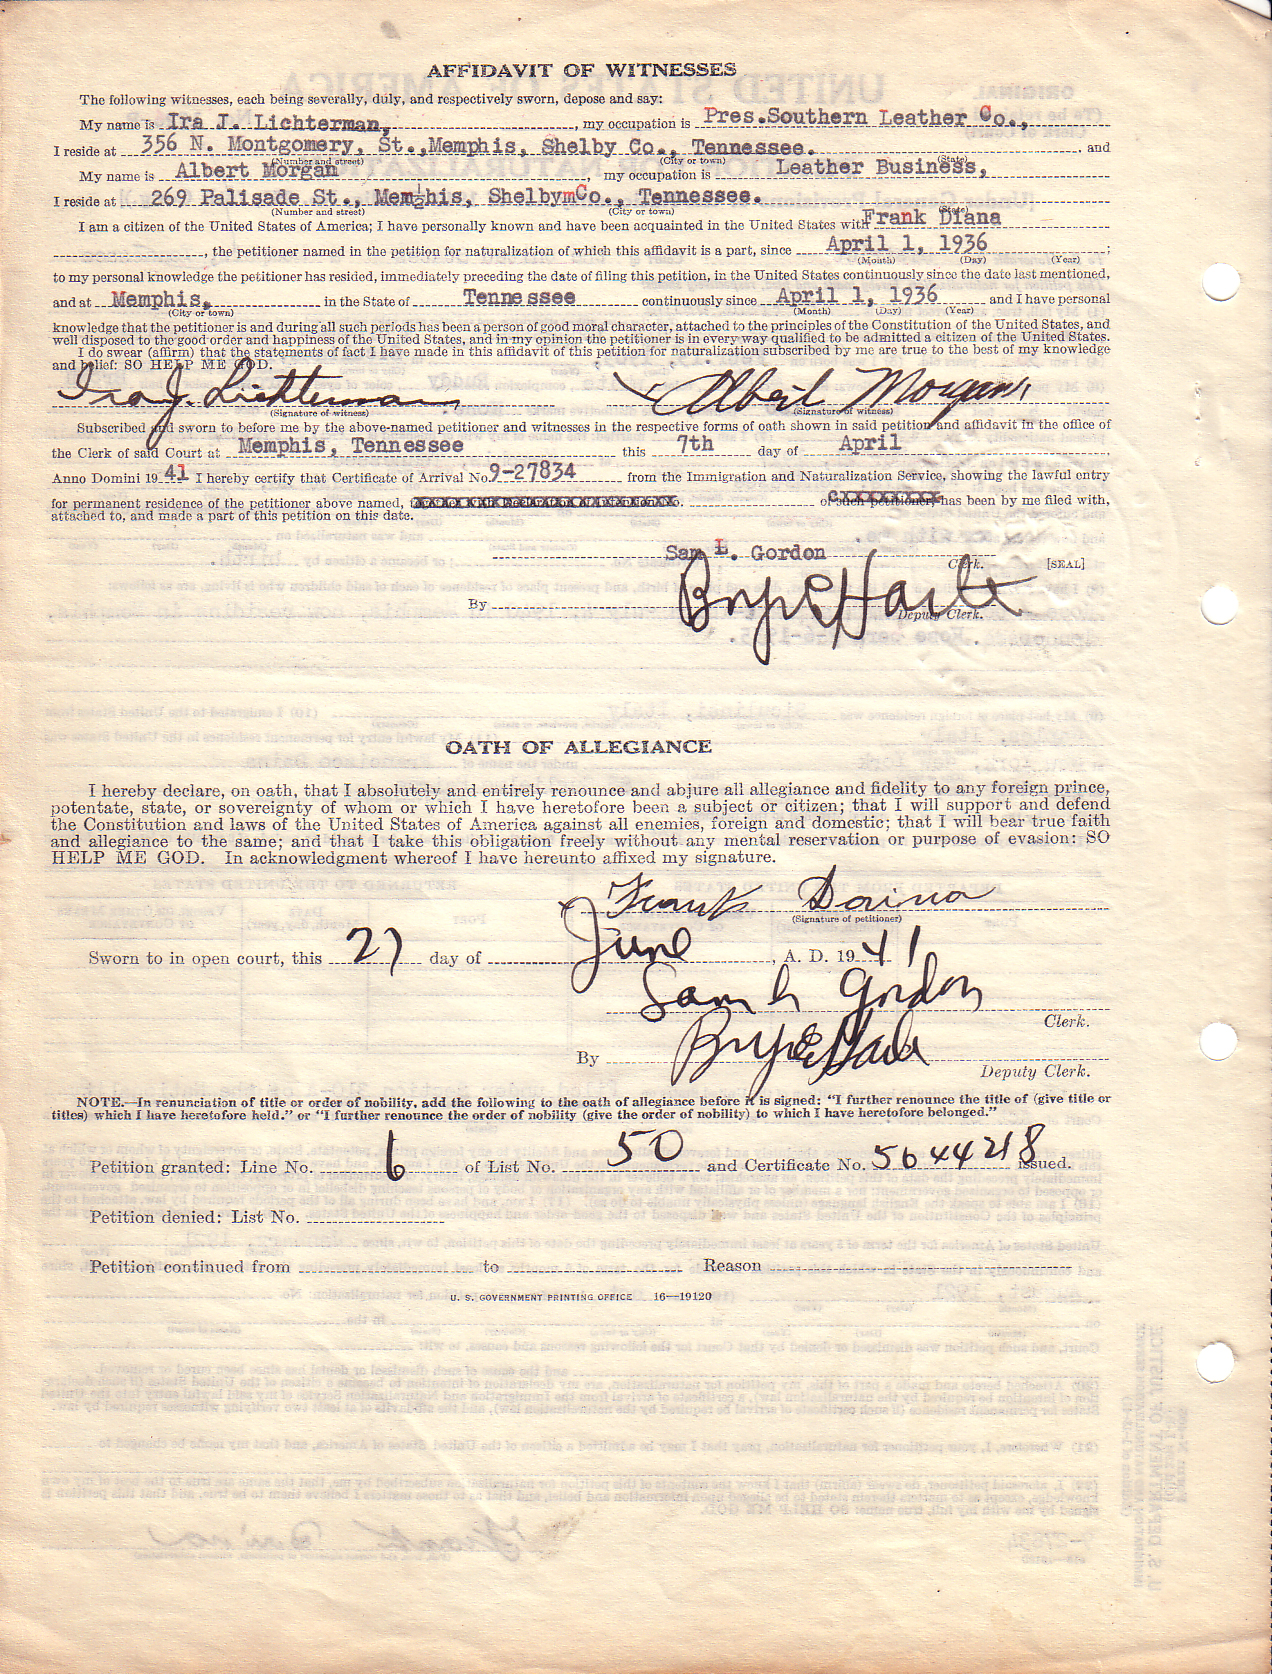 AFFIDAVIT OF WITNESSES
The following witnesses, each being severally, duly, and respectively sworn, depose and say:
My name is Ira J. Lichterman, , my occupation is Pres.Southern Leather Co.,
I reside at 356 N. Montgomery, St.,Memphis, Shelby Co., Tennessee. , and
(Number and street) (City or town) (State)
My name is Albert Morgan , my occupation is Leather Business,
I reside at 269 Palisade St., Memphis, ShelbymCo., Tennessee.
(Number and street) (City or town) (State)
I am a citizen of the United States of America; I have personally known and have been acquainted in the United States with Frank Diana
, the petitioner named in the petition for naturalization of which this affidavit is a part, since April 1, 1936 ;
(Month) (Day) (Year)
to my personal knowledge the petitioner has resided, immediately preceding the date of filing this petition, in the United States continuously since the date last mentioned,
and at Memphis, in the State of Tennessee continuously since April 1, 1936 and I have personal
(City or town) (Month) (Day) (Year)
knowledge that the petitioner is and during all such periods has been a person of good moral character, attached to the principles of the Constitution of the United States, and
well disposed to the good order and happiness of the United States, and in my opinion the petitioner is in every way qualified to be admitted a citizen of the United States.
I do swear (affirm) that the statements of fact I have made in this affidavit of this petition for naturalization subscribed by me are true to the best of my knowledge
and belief: SO HELP ME GOD.
Ira J. Lichterman Albert Morgan
(Signature of witness) (Signature of witness)
Subscribed and sworn to before me by the above-named petitioner and witnesses in the respective forms of oath shown in said petition and affidavit in the office of
the Clerk of said Court at Memphis, Tennessee this 7th day of April ,
Anno Domini 19 41 I hereby certify that Certificate of Arrival No. 9-27834 from the Immigration and Naturalization Service, showing the lawful entry
for permanent residence of the petitioner above named, of such petitioner, has been by me filed with,
attached to, and made a part of this petition on this date.
Sam L. Gordon
Clerk. [SEAL]
By
Deputy Clerk.
OATH OF ALLEGIANCE
I hereby declare, on oath, that I absolutely and entirely renounce and abjure all allegiance and fidelity to any foreign prince,
potentate, state, or sovereignty of whom or which I have heretofore been a subject or citizen; that I will support and defend
the Constitution and laws of the United States of America against all enemies, foreign and domestic; that I will bear true faith
and allegiance to the same; and that I take this obligation freely without any mental reservation or purpose of evasion: SO
HELP ME GOD. In acknowledgment whereof I have hereunto affixed my signature.
Frank Daina
(Signature of petitioner)
Sworn to in open court, this 27 day of June , A. D. 19 41
Sam L Gordon
Clerk.
By
Deputy Clerk.
NOTE.—In renunciation of title or order of nobility, add the following to the oath of allegiance before it is signed: "I further renounce the title of (give title or
titles) which I have heretofore held." or "I further renounce the order of nobility (give the order of nobility) to which I have heretofore belonged."
Petition granted: Line No. 6 of List No. 50 and Certificate No. 5044218 issued.
Petition denied: List No.
Petition continued from to Reason
U. S. GOVERNMENT PRINTING OFFICE 16—19120